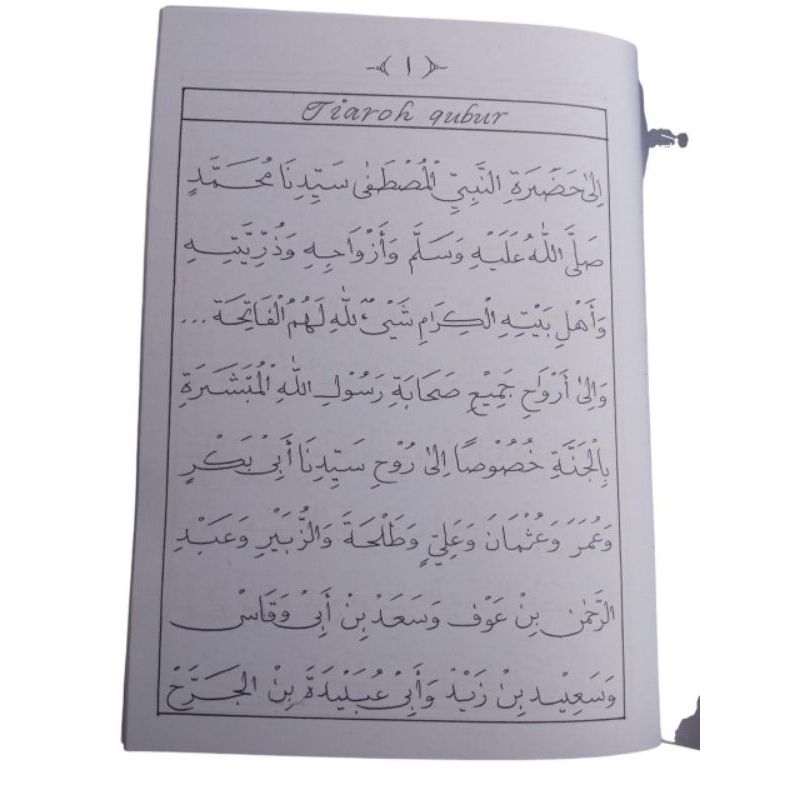 ١
Ziaroh qubur
اِلىٰ حَضْرَةِ النَّبِيِّ الْمُصْطَفٰى سَيِّدِنَا مُحَمَّدٍ
صَلَّى اللّٰهُ عَلَيْهِ وَسَلَّم وَأَزْوَاجِهِ وَذُرِّيَّتِهِ
وَأَهْلِ بَيْتِهِ الْكِرَامِ شَيْئٌ لِلّٰهِ لَهُمُ الْفَاتِحَة ...
وَاِلىٰ أَرْوَاحِ جَمِيْعِ صَحَابَةِ رَسُوْلِ اللّٰهِ الْمُتَشَرَةِ
بِالْجَنَّةِ خُصُوْصًا اِلىٰ رُوْحِ سَيِّدِنَا أَبِىْ بَكْرٍ
وَعُمَرَ وَعُثْمَانَ وَعَلِيٍّ وَطَلْحَةَ وَالزُّبَيْرِ وَعَبْدِ
الرَّحْمٰنِ بِنْ عَوْف وَسَعَدْ بِنْ أَبِىْ وَقَاسْ
وَسَعِيْد بِنْ زَيْدْ وَأَبِىْ عُبَيْدَةَ بِنْ الْجَرَّحْ